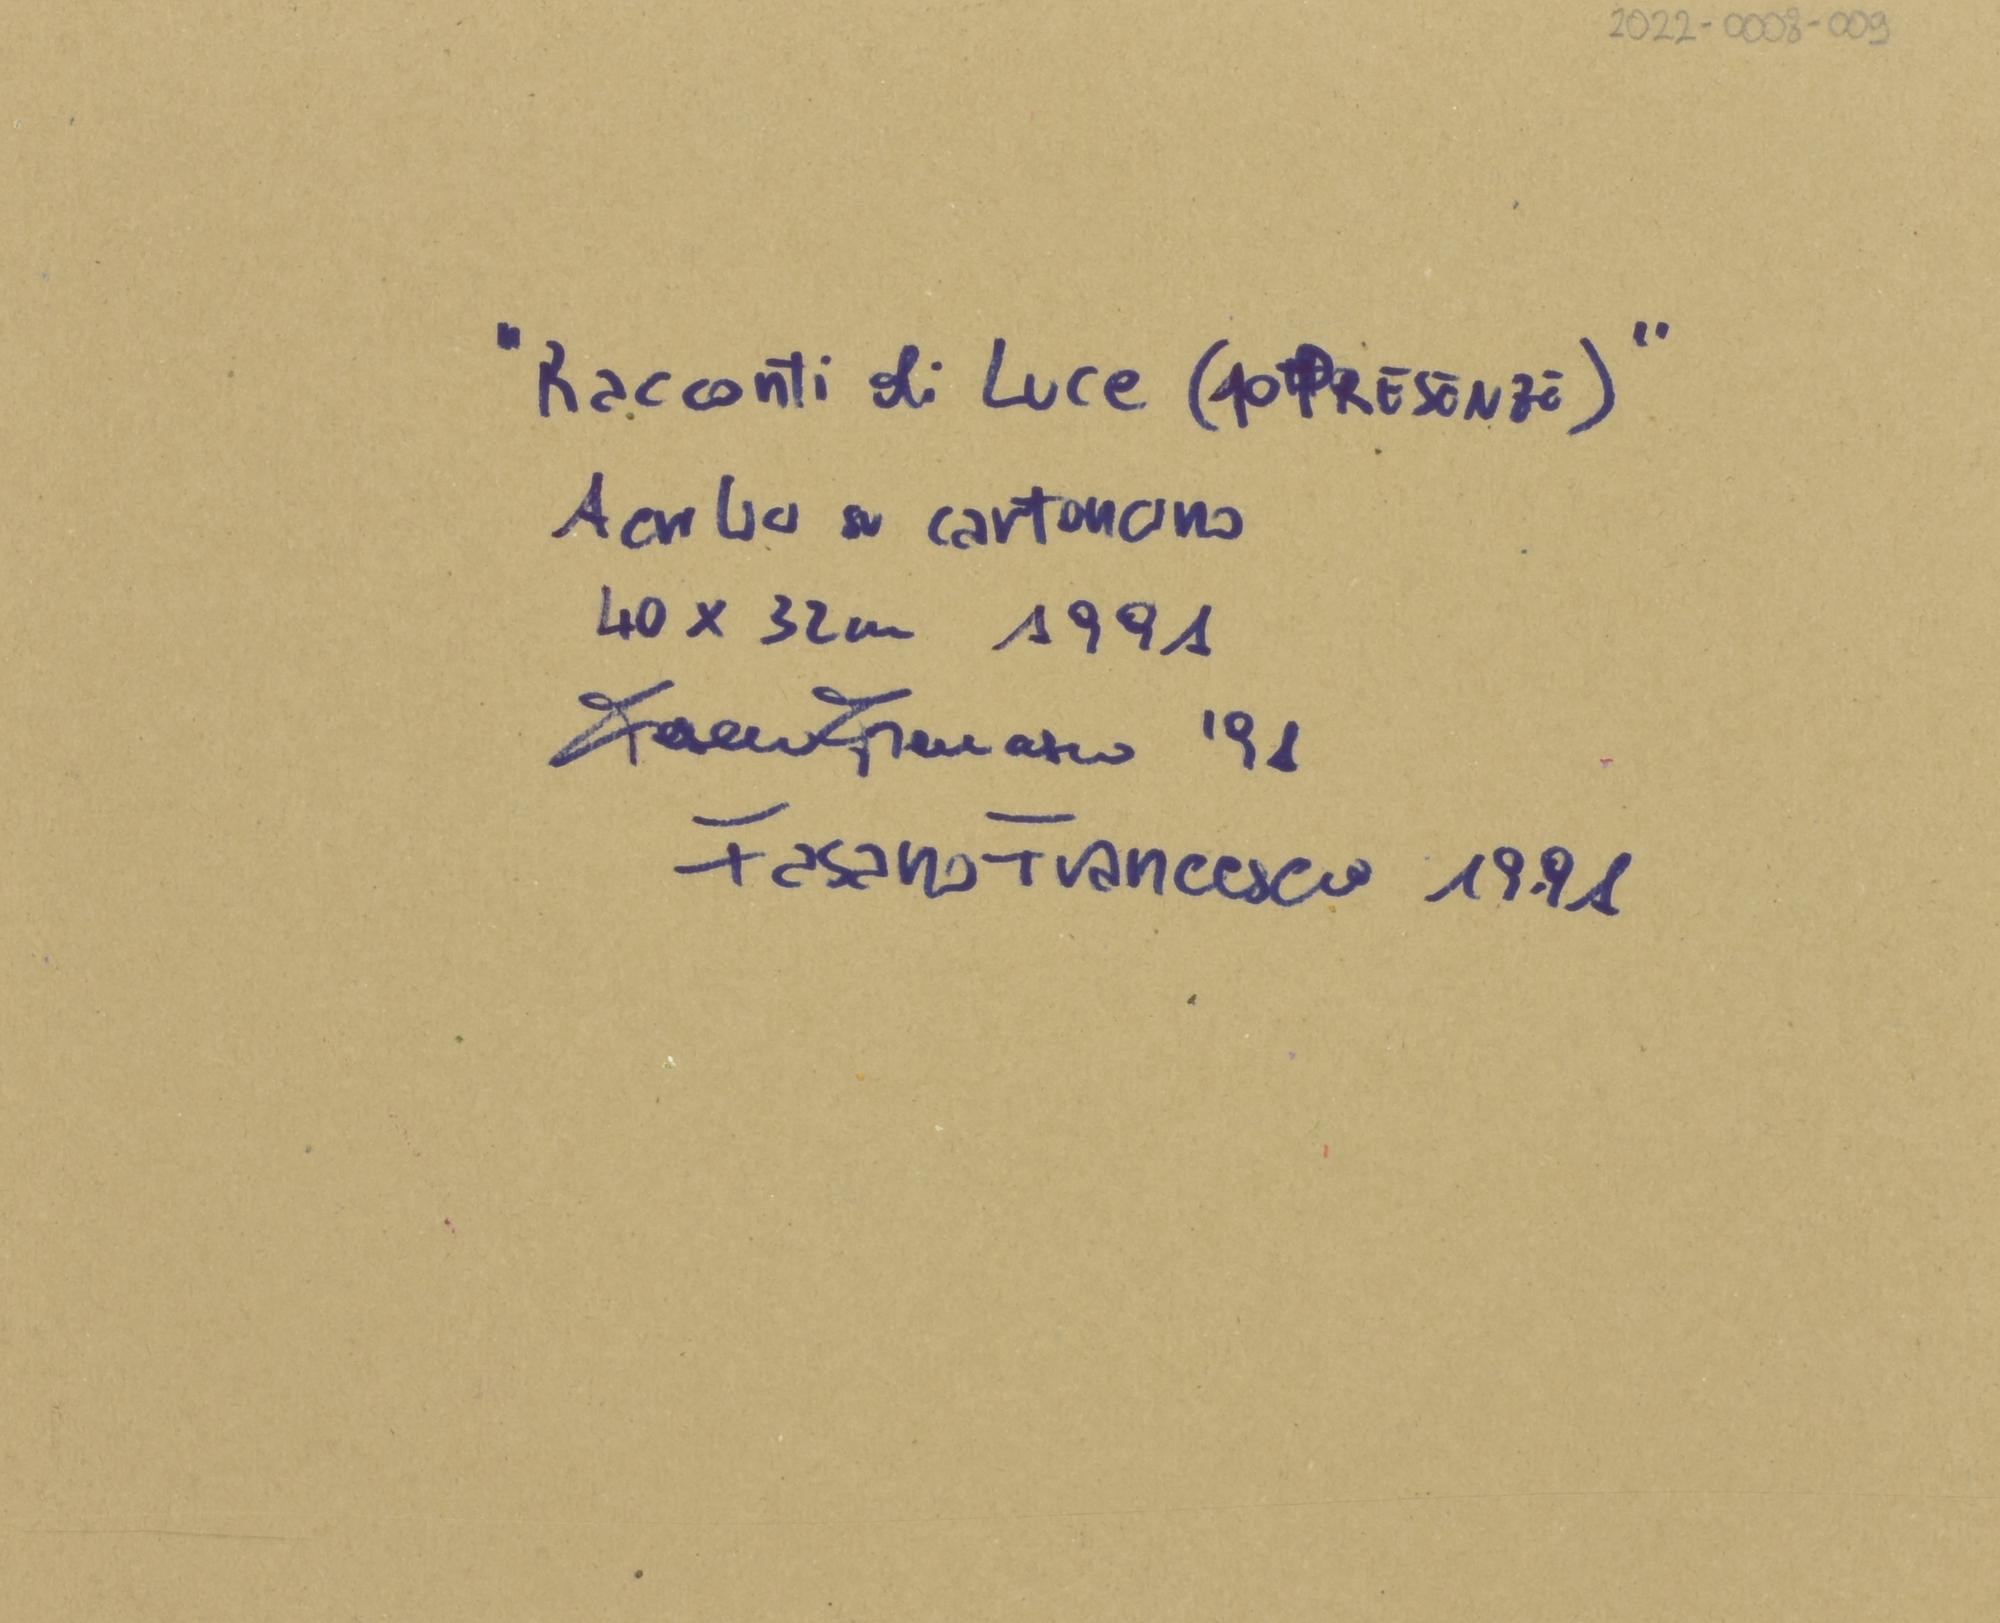 2022-0008-009
"Racconti di Luce (10 PRESENZE)"
Acrilico su cartoncino
40 x 32 cm 1991
Fasano Francesco '91
Fasano Francesco 1991